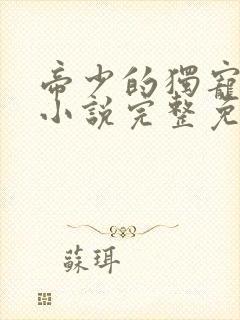 帝少的獨寵
小說完整免
蘇珥